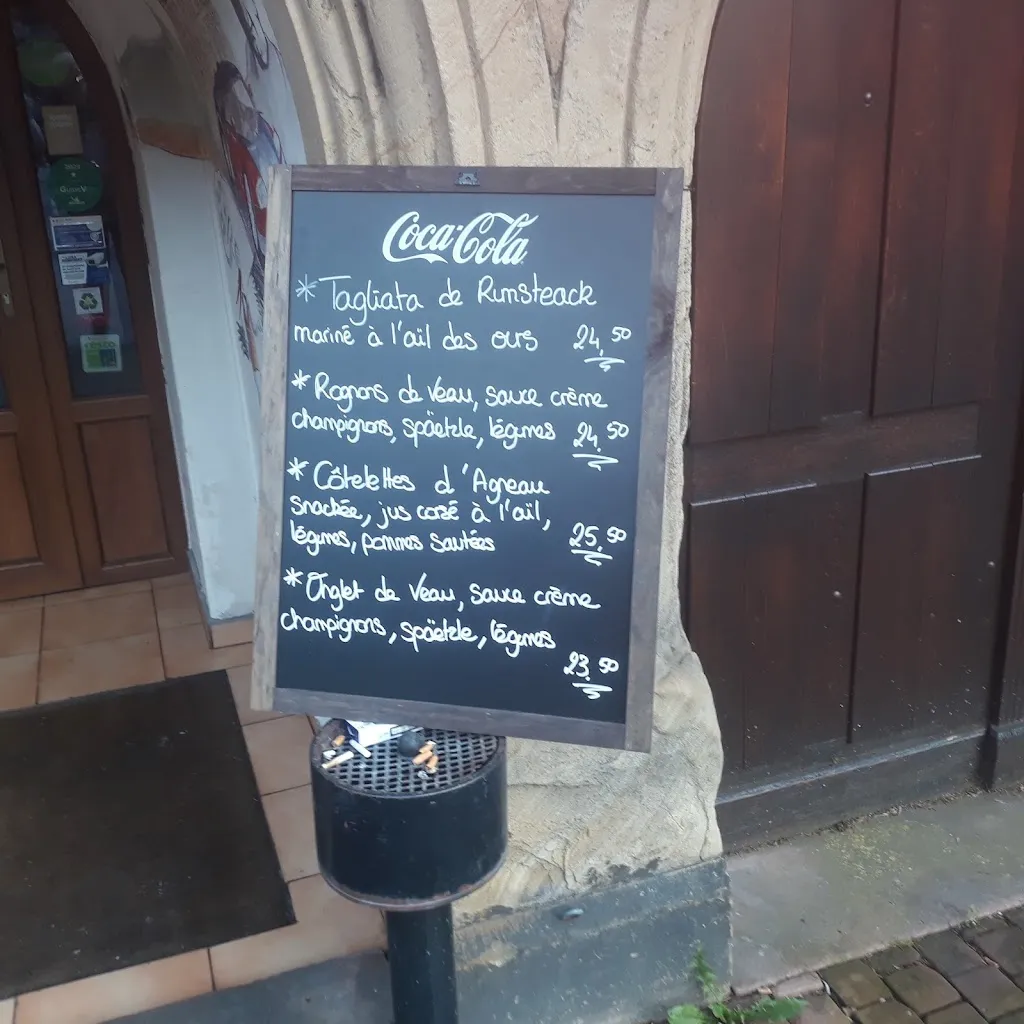 Coca-Cola
* Tagliata de Rumsteack
mariné à l'aïl des ours 24,50
* Rognons de Veau, sauce crème
champignons, späetzle, légumes 24,50
* Côtelettes d'Agneau
Snackée, jus corsé à l'aïl,
légumes, pommes sautées 25,50
* Onglet de Veau, sauce crème
champignons, späetzle, légumes
23,50